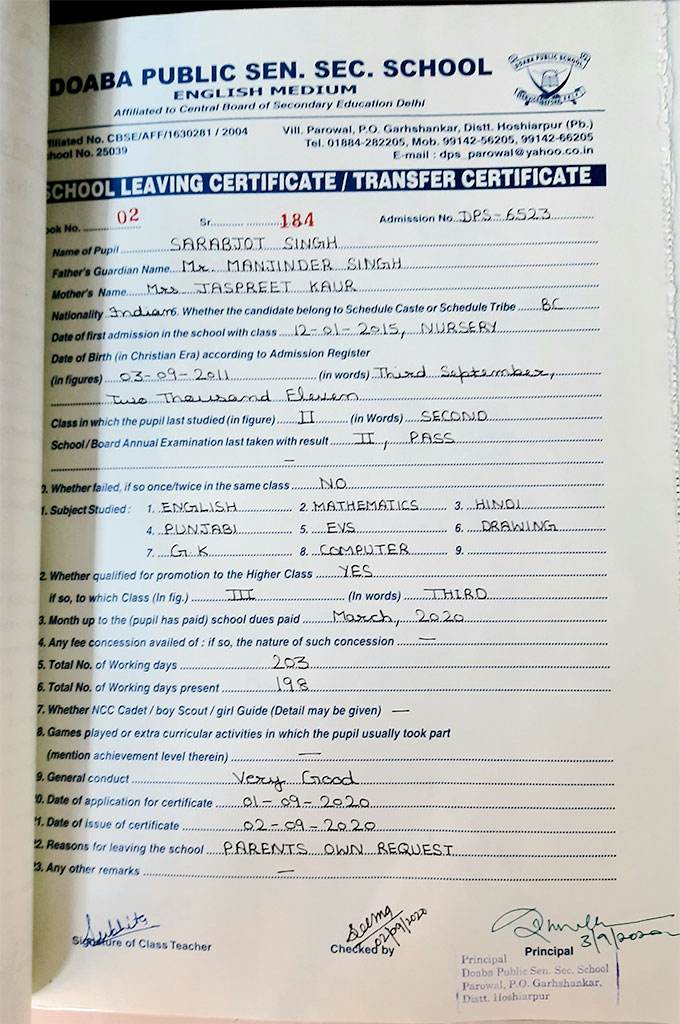 DOABA PUBLIC SEN. SEC. SCHOOL
ENGLISH MEDIUM
Affiliated to Central Board of Secondary Education Delhi
DOABA PUBLIC SCHOOL
filiated No. CBSE/AFF/1630281 / 2004 Vill. Parowal, P.O. Garhshankar, Distt. Hoshiarpur (Pb.)
hool No. 25039 Tel. 01884-282205, Mob. 99142-56205, 99142-66205
E-mail : dps_parowal@yahoo.co.in
SCHOOL LEAVING CERTIFICATE / TRANSFER CERTIFICATE
ook No. 02 Sr. 184 Admission No. DPS-6523
Name of Pupil SARABJOT SINGH
Father's Guardian Name Mr. MANJINDER SINGH
Mother's Name Mrs JASPREET KAUR
Nationality Indian. Whether the candidate belong to Schedule Caste or Schedule Tribe BC
Date of first admission in the school with class 12-01-2015, NURSERY
Date of Birth (in Christian Era) according to Admission Register
(in figures) 03-09-2011 (in words) Third September,
Two Thousand Eleven
Class in which the pupil last studied (in figure) II (in Words) SECOND
School / Board Annual Examination last taken with result II, PASS
—
0. Whether failed, if so once/twice in the same class NO
1. Subject Studied : 1. ENGLISH 2. MATHEMATICS 3. HINDI
4. PUNJABI 5. EVS 6. DRAWING
7. G.K 8. COMPUTER 9.
2. Whether qualified for promotion to the Higher Class YES
if so, to which Class (In fig.) III (In words) THIRD
3. Month up to the (pupil has paid) school dues paid March, 2020
4. Any fee concession availed of : if so, the nature of such concession —
5. Total No. of Working days 203
6. Total No. of Working days present 198
7. Whether NCC Cadet / boy Scout / girl Guide (Detail may be given) —
8. Games played or extra curricular activities in which the pupil usually took part
(mention achievement level therein) —
9. General conduct Very Good
20. Date of application for certificate 01-09-2020
21. Date of issue of certificate 02-09-2020
22. Reasons for leaving the school PARENTS OWN REQUEST
23. Any other remarks —
Seema
02/09/2020
3/9/2020
Signature of Class Teacher Checked by Principal
Principal
Doaba Public Sen. Sec. School
Parowal, P.O. Garhshankar,
Distt. Hoshiarpur